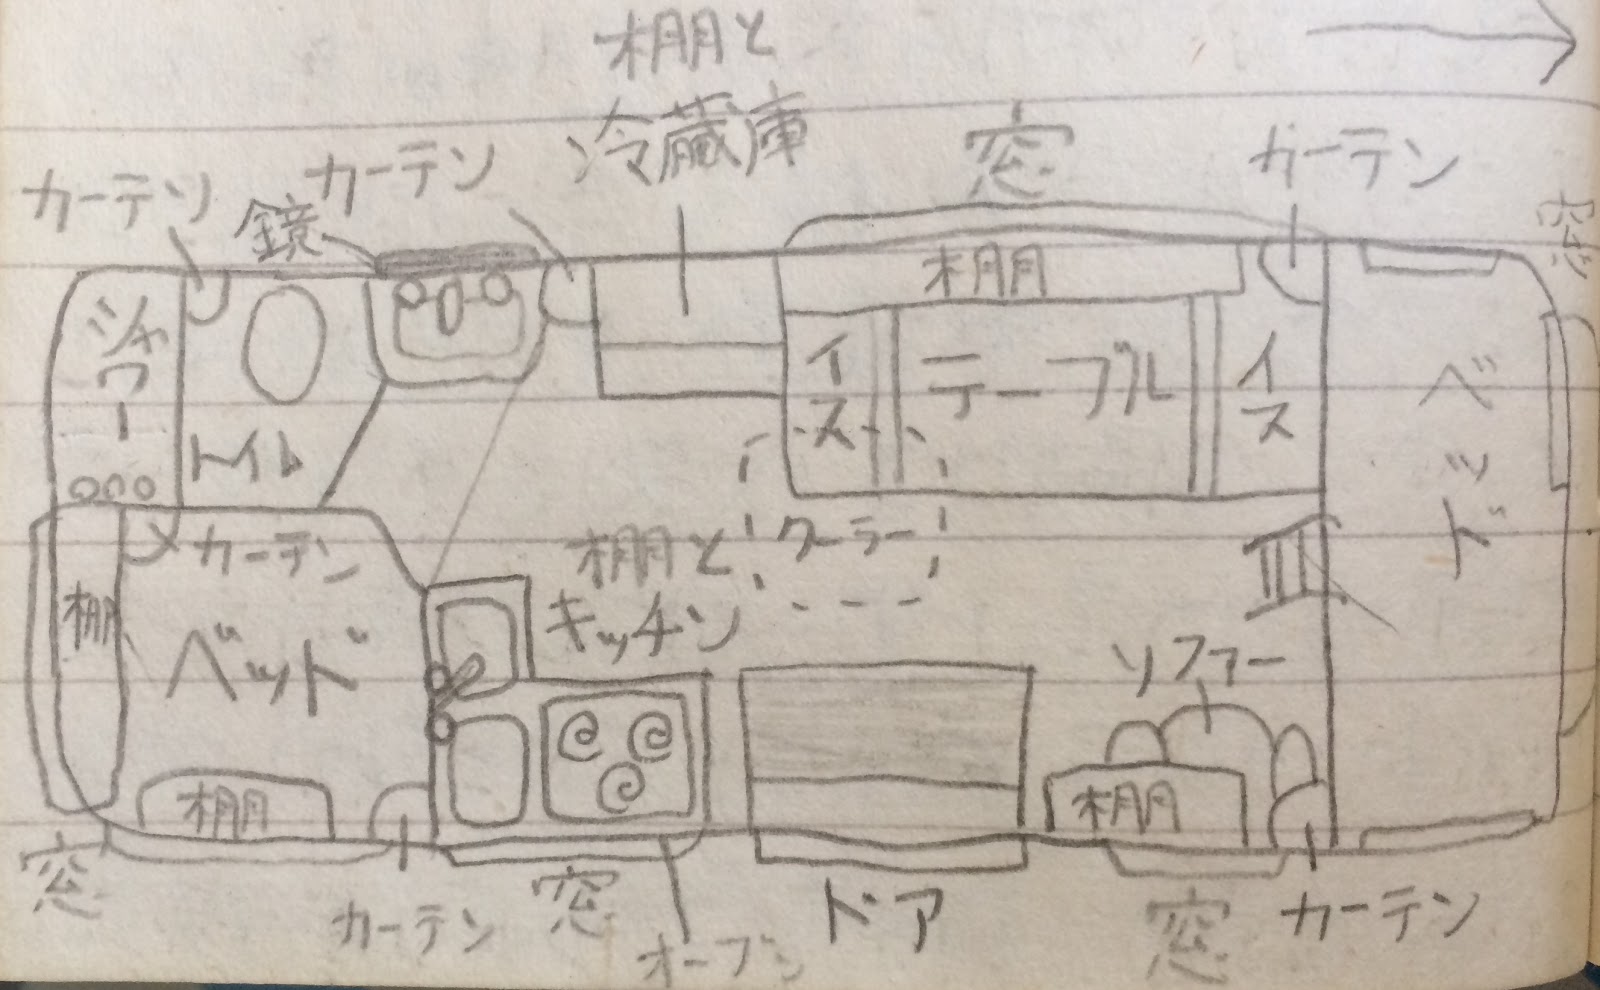 棚と
冷蔵庫
カーテン
鏡
カーテン
窓
カーテン
窓
シャワー
トイレ
棚
イス
テーブル
イス
ベッド
カーテン
棚
ベッド
棚と
キッチン
クーラー
ソファー
棚
棚
窓
カーテン
窓
オーブン
ドア
窓
カーテン